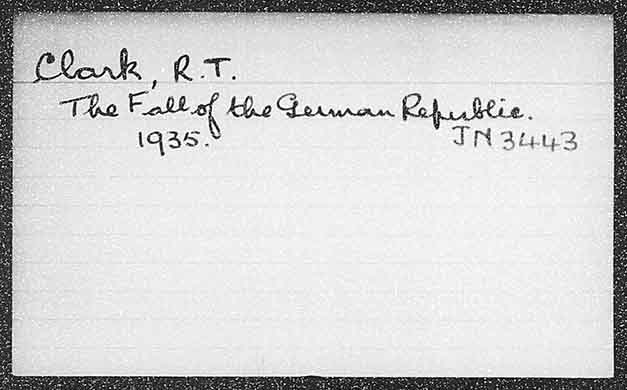 Clark, R.T.
The Fall of the German Republic.
1935. JN 3443